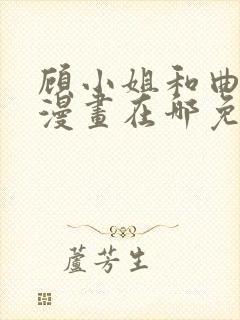 顾小姐和曲
漫畫在哪免
蘆芳生